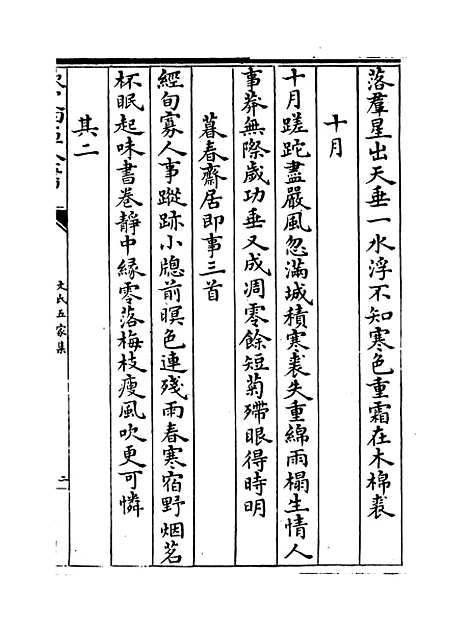 落羣星出天垂一水浮不知寒色重霜在木棉裘
十月
十月蹉跎盡嚴風忽滿城積寒裘失重綿雨榻生情人
事莽無際歲功垂又成凋零餘短菊殢眼得時明
暮春齋居即事三首
經旬寡人事蹤跡小牕前暝色連殘雨春寒宿野烟茗
杯眠起味書卷靜中緣零落梅枝瘦風吹更可憐
其二
文氏五家集
二